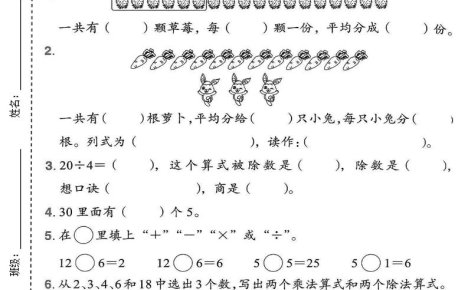 一共有(　　)颗草莓，每(　　)颗一份，平均分成(　　)份。
2.
一共有(　　)根萝卜，平均分给(　　)只小兔，每只小兔分(　　)
根。列式为(　　　　　　　)，读作：(　　　　　　　)。
3. 20÷4=(　　)，这个算式被除数是(　　)，除数是(　　)，
想口诀(　　　　　)，商是(　　)。
4. 30里面有(　　)个5。
5. 在○里填上“+”“−”“×”或“÷”。
12○6=2　12○6=6　5○5=25　5○1=6
6. 从2、3、4、6和18中选出3个数，写出两个乘法算式和两个除法算式。
姓名：
班级：